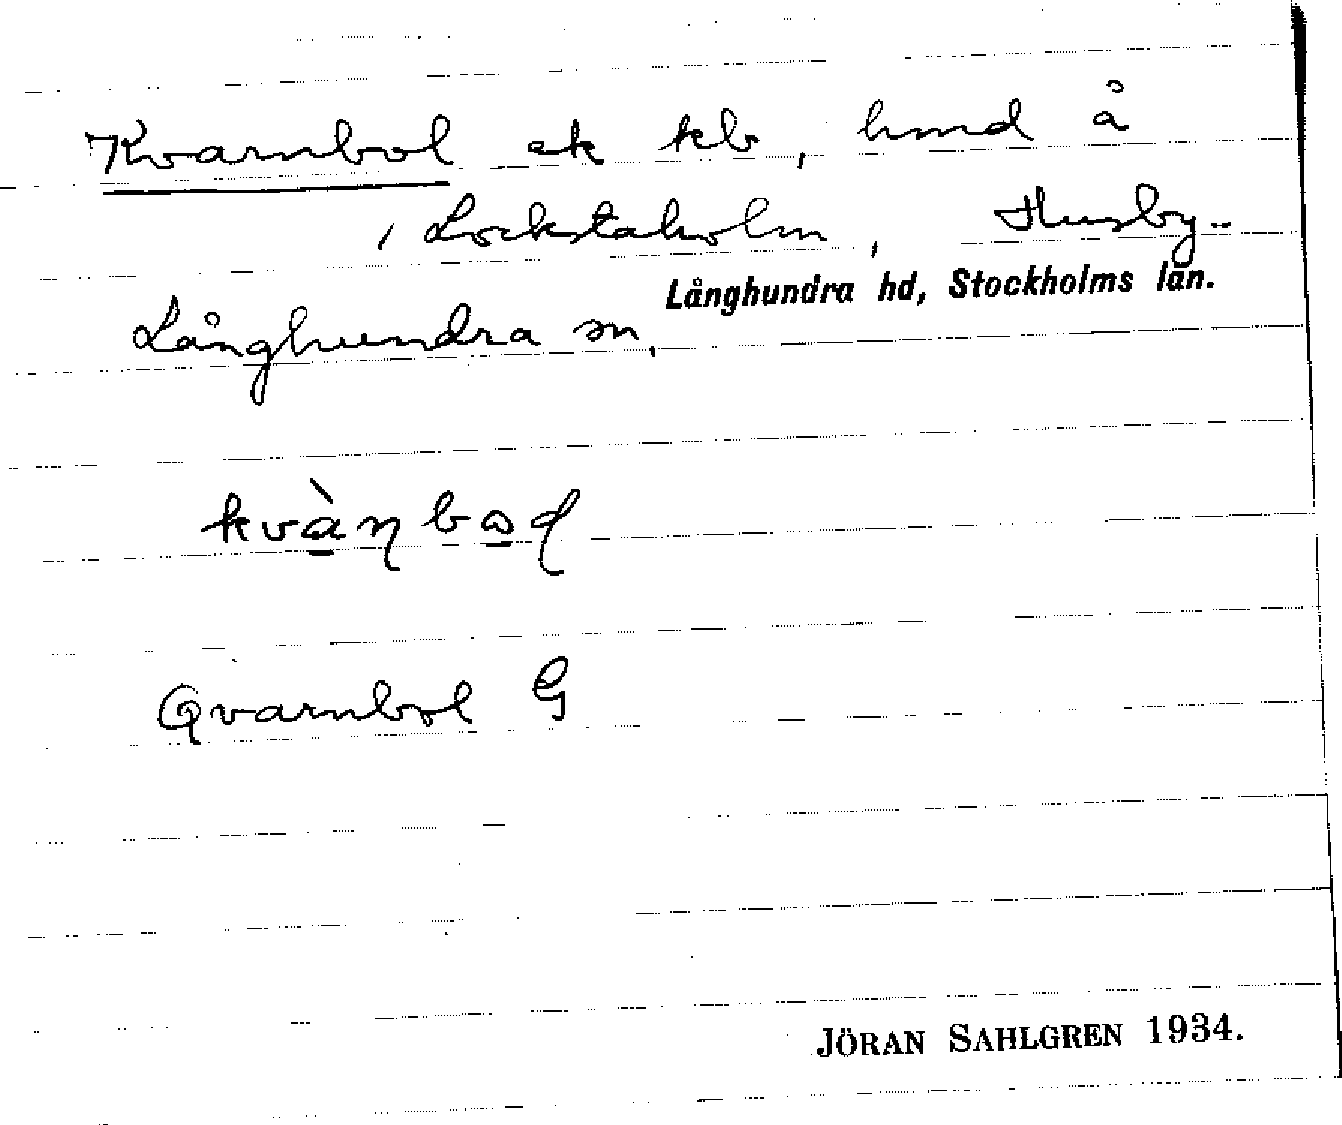 Kvarnbol ek kb, hmd å
, Lockstaholm, Husby-
Långhundra sn, Långhundra hd, Stockholms län.
kvàɳbɷɭ
Qvarnbol G
JÖRAN SAHLGREN 1934.